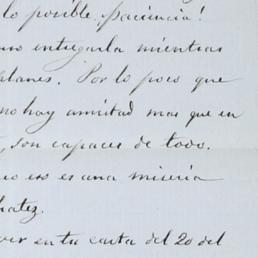 lo posible, paciencia!
entregarla mientras
planes. Por lo poco que
no hay amistad mas que en
, son capaces de todo.
eso es una miseria
ver en tu carta del 20 del